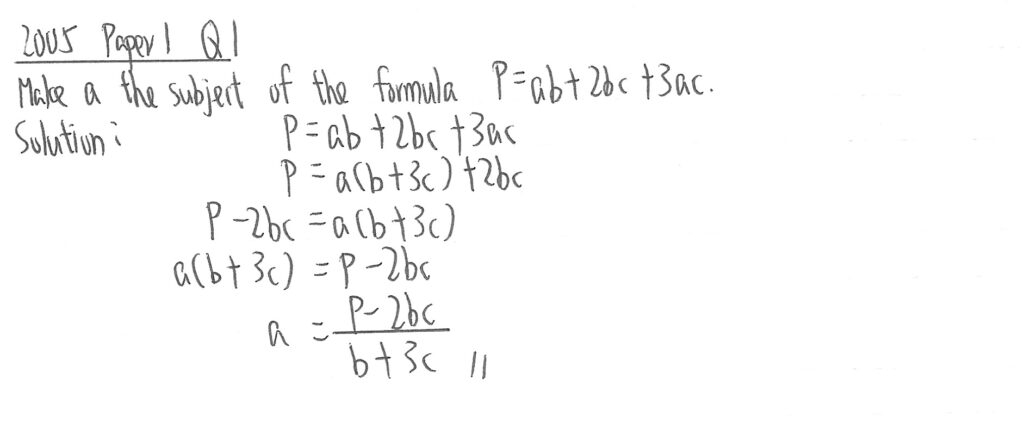 2005 Paper 1 Q1
Make a the subject of the formula P=ab+2bc+3ac.
Solution: P=ab+2bc+3ac
P=a(b+3c)+2bc
P-2bc=a(b+3c)
a(b+3c)=P-2bc
a=\frac{P-2bc}{b+3c} //